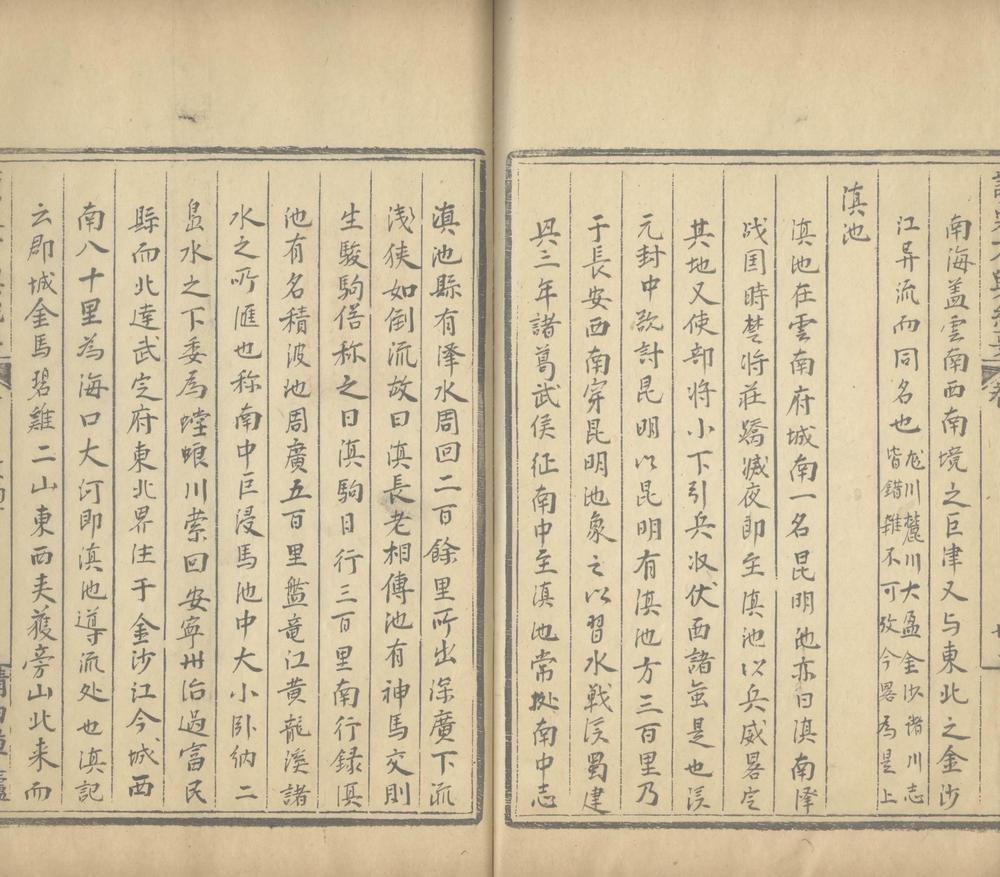 南海盖雲南西南境之巨津又与東北之金沙
江异流而同名也龙川麓川大盈金沙諸川志
皆錯雜不可攷今畧爲是上
滇池
滇池在雲南府城南一名昆明池亦曰滇南澤
战国時楚将莊蹻滅夜郎至滇池以兵威畧定
其地又使部将小下引兵収伏西諸蛮是也漢
元封中欲討昆明以昆明有滇池方三百里乃
于長安西南穿昆明池象之以習水戦漢蜀建
興三年諸葛武侯征南中至滇池常処南中志
滇池縣有澤水周回二百餘里所出深廣下流
浅狭如倒流故曰滇長老相傳池有神馬交則
生駿駒俗称之曰滇駒日行三百里南行録滇
池有名積波池周廣五百里盤竜江黄龍溪諸
水之所匯也称南中巨浸馬池中大小卧納二
島水之下委爲螳螂川縈回安寧州治過富民
縣而北達武定府東北界注于金沙江今城西
南八十里為海口大河即滇池導流处也滇記
云郡城金馬碧雞二山東西夹護旁山北来而